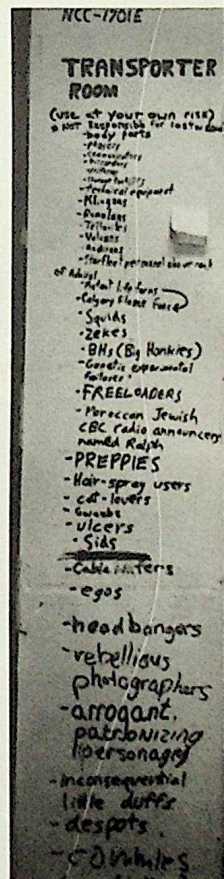 NCC-1701E
TRANSPORTER
ROOM
(use at your own risk)
NOT Responsible for lost or
- body parts
- phasers
- communicators
- tricorders
- technical equipment
- Klingons
- Romulans
- Tellarites
- Vulcans
- Andorians
- Starfleet personnel above rank
of Admiral
- Calgary Flames Fans
- Squids
- Zekes
- BHs (Big Honkies)
- Genetic experimental
failures
- FREELOADERS
- Moroccan Jewish
CBC radio announcers
named Ralph
- PREPPIES
- Hair-spray users
- cat-lovers
- ulcers
- Sids
- egos
- headbangers
- rebellious
photographers
- arrogant,
patronizing
personages
- inconsequential
little duffs
- despots